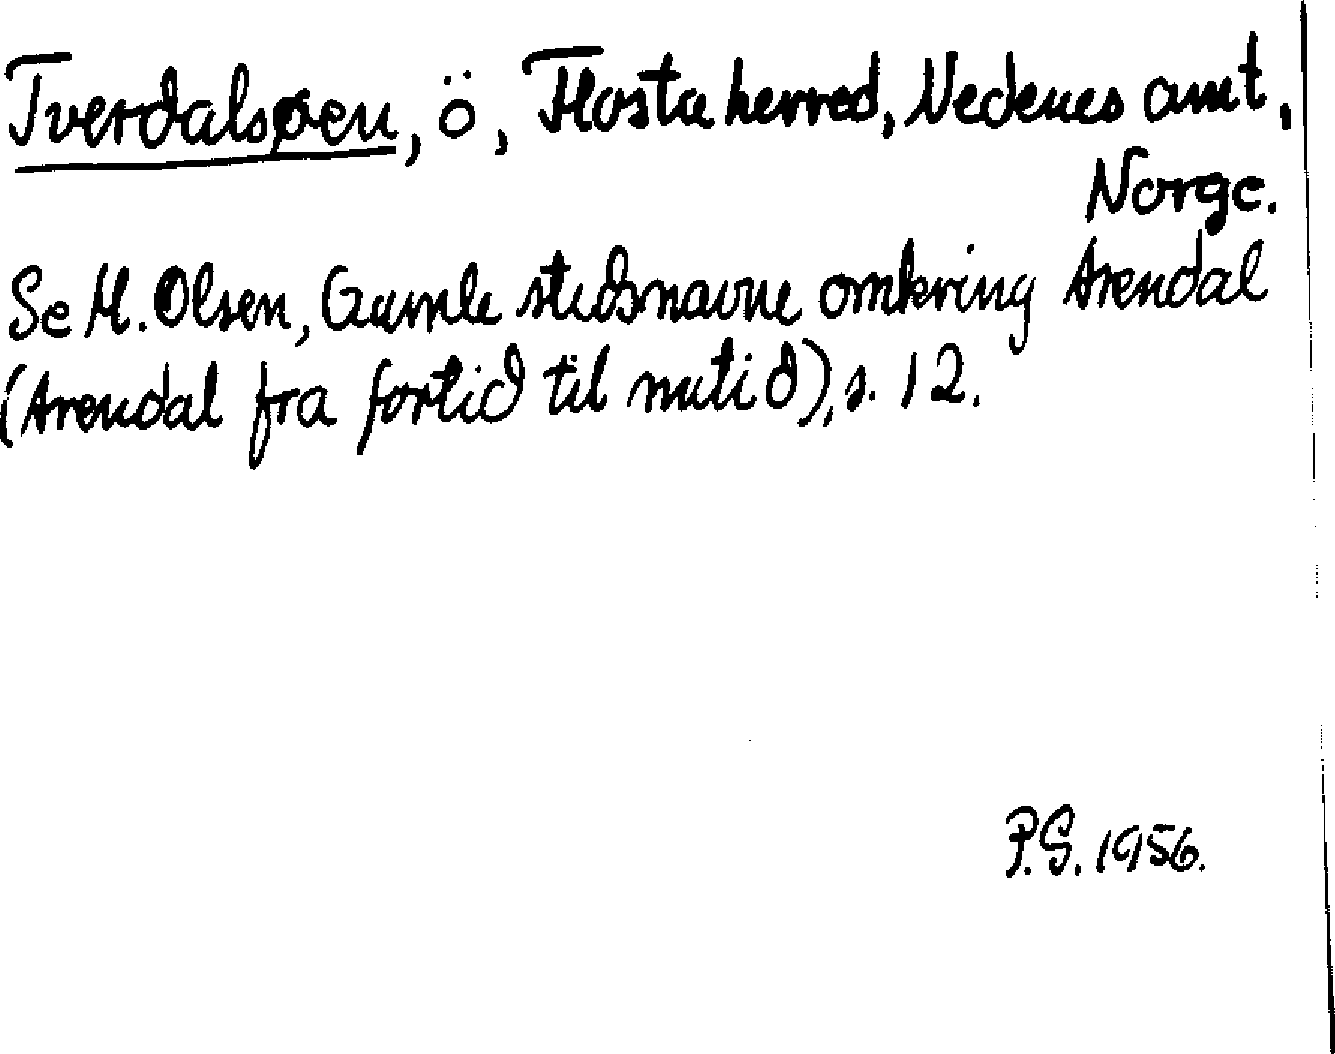 Tverdalsøen, ö, Flosta herred, Nedenes amt,
Norge.
Se M. Olsen, Gamle stedsnavne omkring Arendal
(Arendal fra fortid til nutid), s. 12.
P.S. 1956.